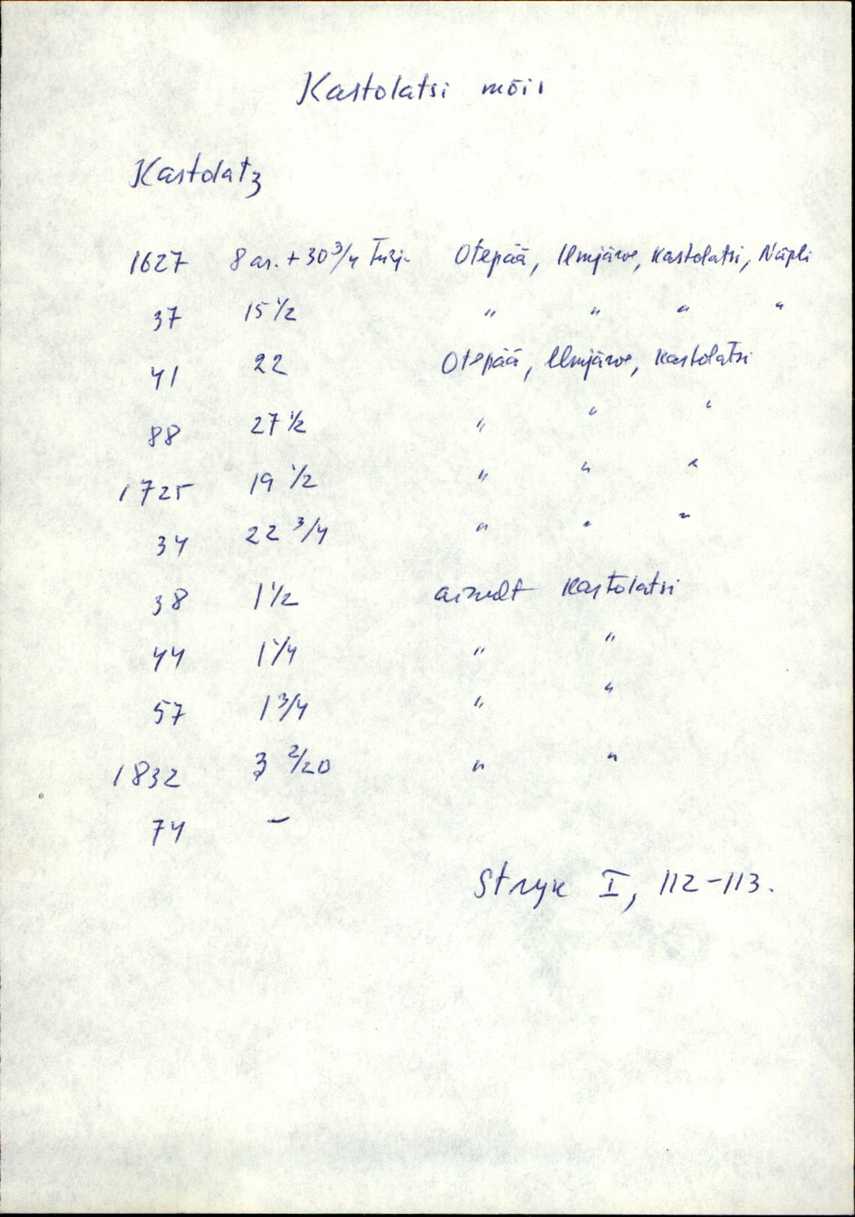 Kastolatsi mõis
Kastolatz
1627 8 as. + 30 3/4 Otepää, Ilmjärve, Kastolatsi, Näpli
37 15 1/2 " " " "
41 22 Otepää, Ilmjärve, Kastolatsi
88 27 1/2 " " "
1725 19 1/2 " " "
34 22 3/4 " " "
38 1 1/2 ainult Kastolatsi
44 1 1/4 " "
57 1 3/4 " "
1832 3 2/20 " "
74 –
Stryk I, 112-113.